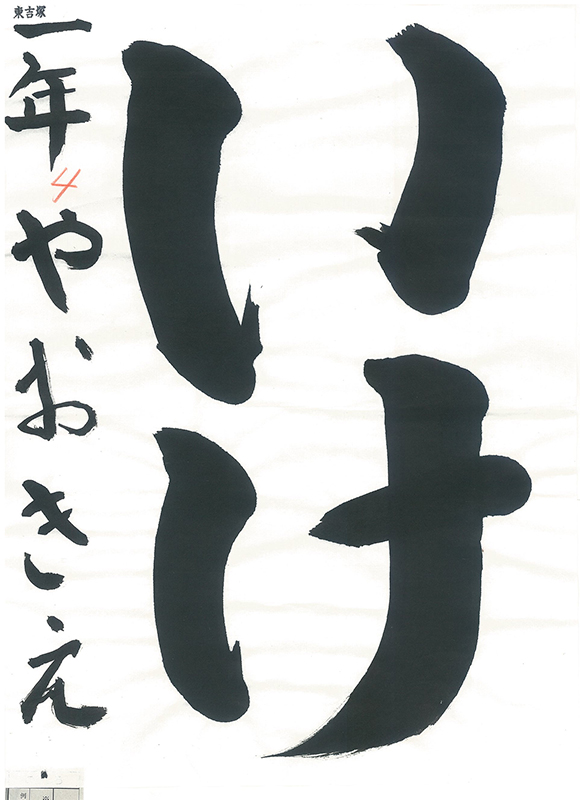 いけ
東吉塚
一年
4
やおきえ